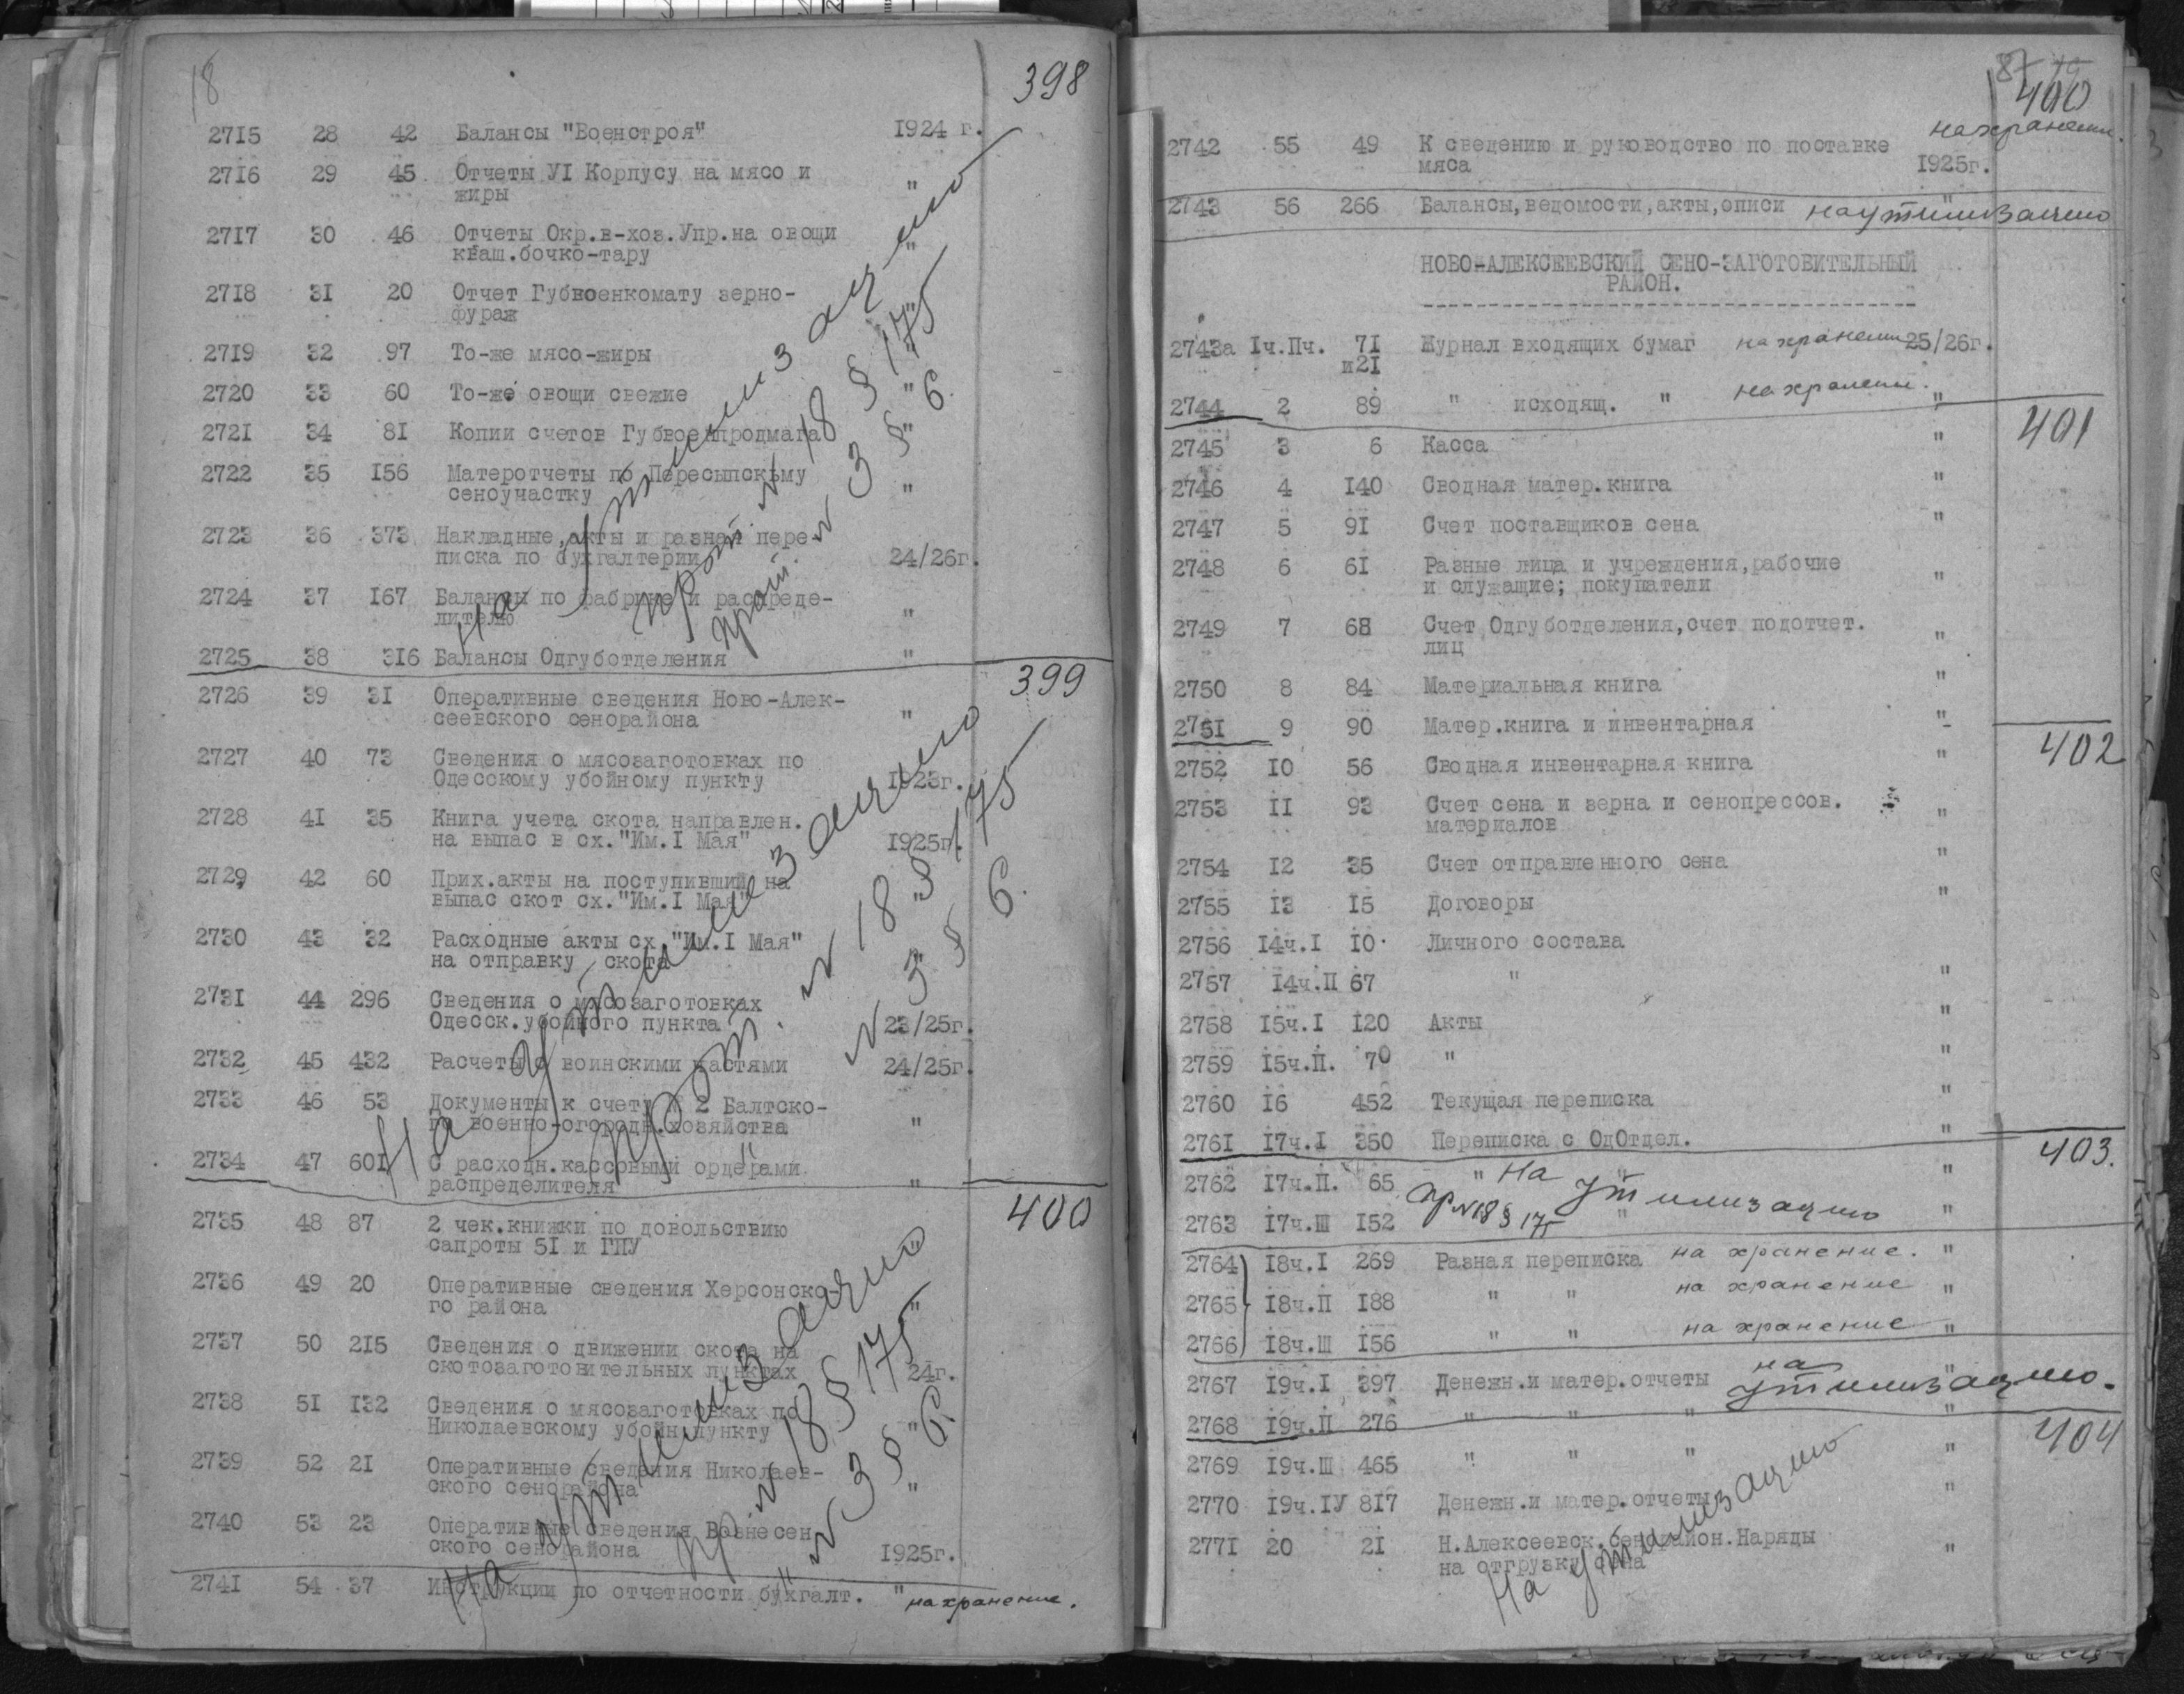 18
398
2715 28 42 Балансы "Военстроя" 1924 г.
2716 29 45 Отчеты УІ Корпусу на мясо и
жиры "
2717 30 46 Отчеты Окр.в-хоз.Упр.на овощи
кваш.бочко-тару "
2718 31 20 Отчет Губвоенкомату зерно-
фураж "
2719 32 97 То-же мясо-жиры "
2720 33 60 То-же овощи свежие "
2721 34 81 Копии счетов Губвоенпродмага "
2722 35 156 Матеротчеты по Пересыпскому
сеноучастку "
2723 36 373 Накладные,акты и разная пере-
писка по бухгалтерии 24/26г.
2724 37 167 Балансы по фабрике и распреде-
лителю "
2725 38 316 Балансы Одгуботделения "
На утилизацию
прот. № 18 § 175
прот. № 3 § 6.
399
2726 39 31 Оперативные сведения Ново-Алек-
сеевского сенорайона "
2727 40 73 Сведения о мясозаготовках по
Одесскому убойному пункту 1923г.
2728 41 35 Книга учета скота направлен.
на выпас в сх."Им.I Мая" 1925г.
2729 42 60 Прих.акты на поступивший на
выпас скот сх."Им.I Мая" "
2730 43 32 Расходные акты сх."Им.I Мая"
на отправку скота "
2731 44 296 Сведения о мясозаготовках
Одесск.убойного пункта 23/25г.
2732 45 432 Расчеты с воинскими частями 24/25г.
2733 46 53 Документы к счету № 2 Балтско-
го военно-огородн.хозяйства "
2734 47 601 С расходн.кассовыми ордерами
распределителя "
На утилизацию
прот. № 18 § 175
№ 3 § 6.
400
2735 48 87 2 чек.книжки по довольствию
сапроты 51 и ГПУ "
2736 49 20 Оперативные сведения Херсонско-
го района "
2737 50 215 Сведения о движении скота на
скотозаготовительных пунктах 24г.
2738 51 132 Сведения о мясозаготовках по
Николаевскому убойн.пункту "
2739 52 21 Оперативные сведения Николаев-
ского сенорайона "
2740 53 23 Оперативные сведения Вознесен
ского сенорайона 1925г.
На утилизацию
пр. № 18 § 175
" № 3 § 6.
2741 54 37 Инструкции по отчетности бухгалт. " на хранение.
87 19
400
на хранении.
2742 55 49 К сведению и руководство по поставке
мяса 1925г.
2743 56 266 Балансы,ведомости,акты,описи " на утилизацию
НОВО-АЛЕКСЕЕВСКИЙ СЕНО-ЗАГОТОВИТЕЛЬНЫЙ
РАЙОН.
2743а Iч.Пч. 71 Журнал входящих бумаг на хранении 25/26г.
и21
2744 2 89 " исходящ. " на хранении. "
401
2745 3 6 Касса "
2746 4 140 Сводная матер.книга "
2747 5 91 Счет поставщиков сена "
2748 6 61 Разные лица и учреждения,рабочие
и служащие; покупатели "
2749 7 68 Счет Одгуботделения,счет подотчет.
лиц "
2750 8 84 Материальная книга "
2751 9 90 Матер.книга и инвентарная "
402
2752 10 56 Сводная инвентарная книга "
2753 11 93 Счет сена и зерна и сенопрессов.
материалов "
2754 12 35 Счет отправленного сена "
2755 13 15 Договоры "
2756 14ч.I 10 Личного состава
2757 14ч.П 67 " "
2758 15ч.I 120 Акты "
2759 15ч.П. 70 " "
2760 16 452 Текущая переписка "
2761 17ч.I 350 Переписка с ОдОтдел. "
403.
2762 17ч.П. 65 " " "
На утилизацию
пр № 18 § 175
2763 17ч.Ш 152 " "
2764 18ч.I 269 Разная переписка на хранение. "
2765 18ч.П 188 " " на хранение "
2766 18ч.Ш 156 " " на хранение "
2767 19ч.I 397 Денежн.и матер.отчеты на утилизацию. "
2768 19ч.П 276 " " " "
404
2769 19ч.Ш 465 " " " "
2770 19ч.IУ 817 Денежн.и матер.отчеты "
2771 20 21 Н.Алексеевск.сенорайон.Наряды
на отгрузку сена "
На утилизацию